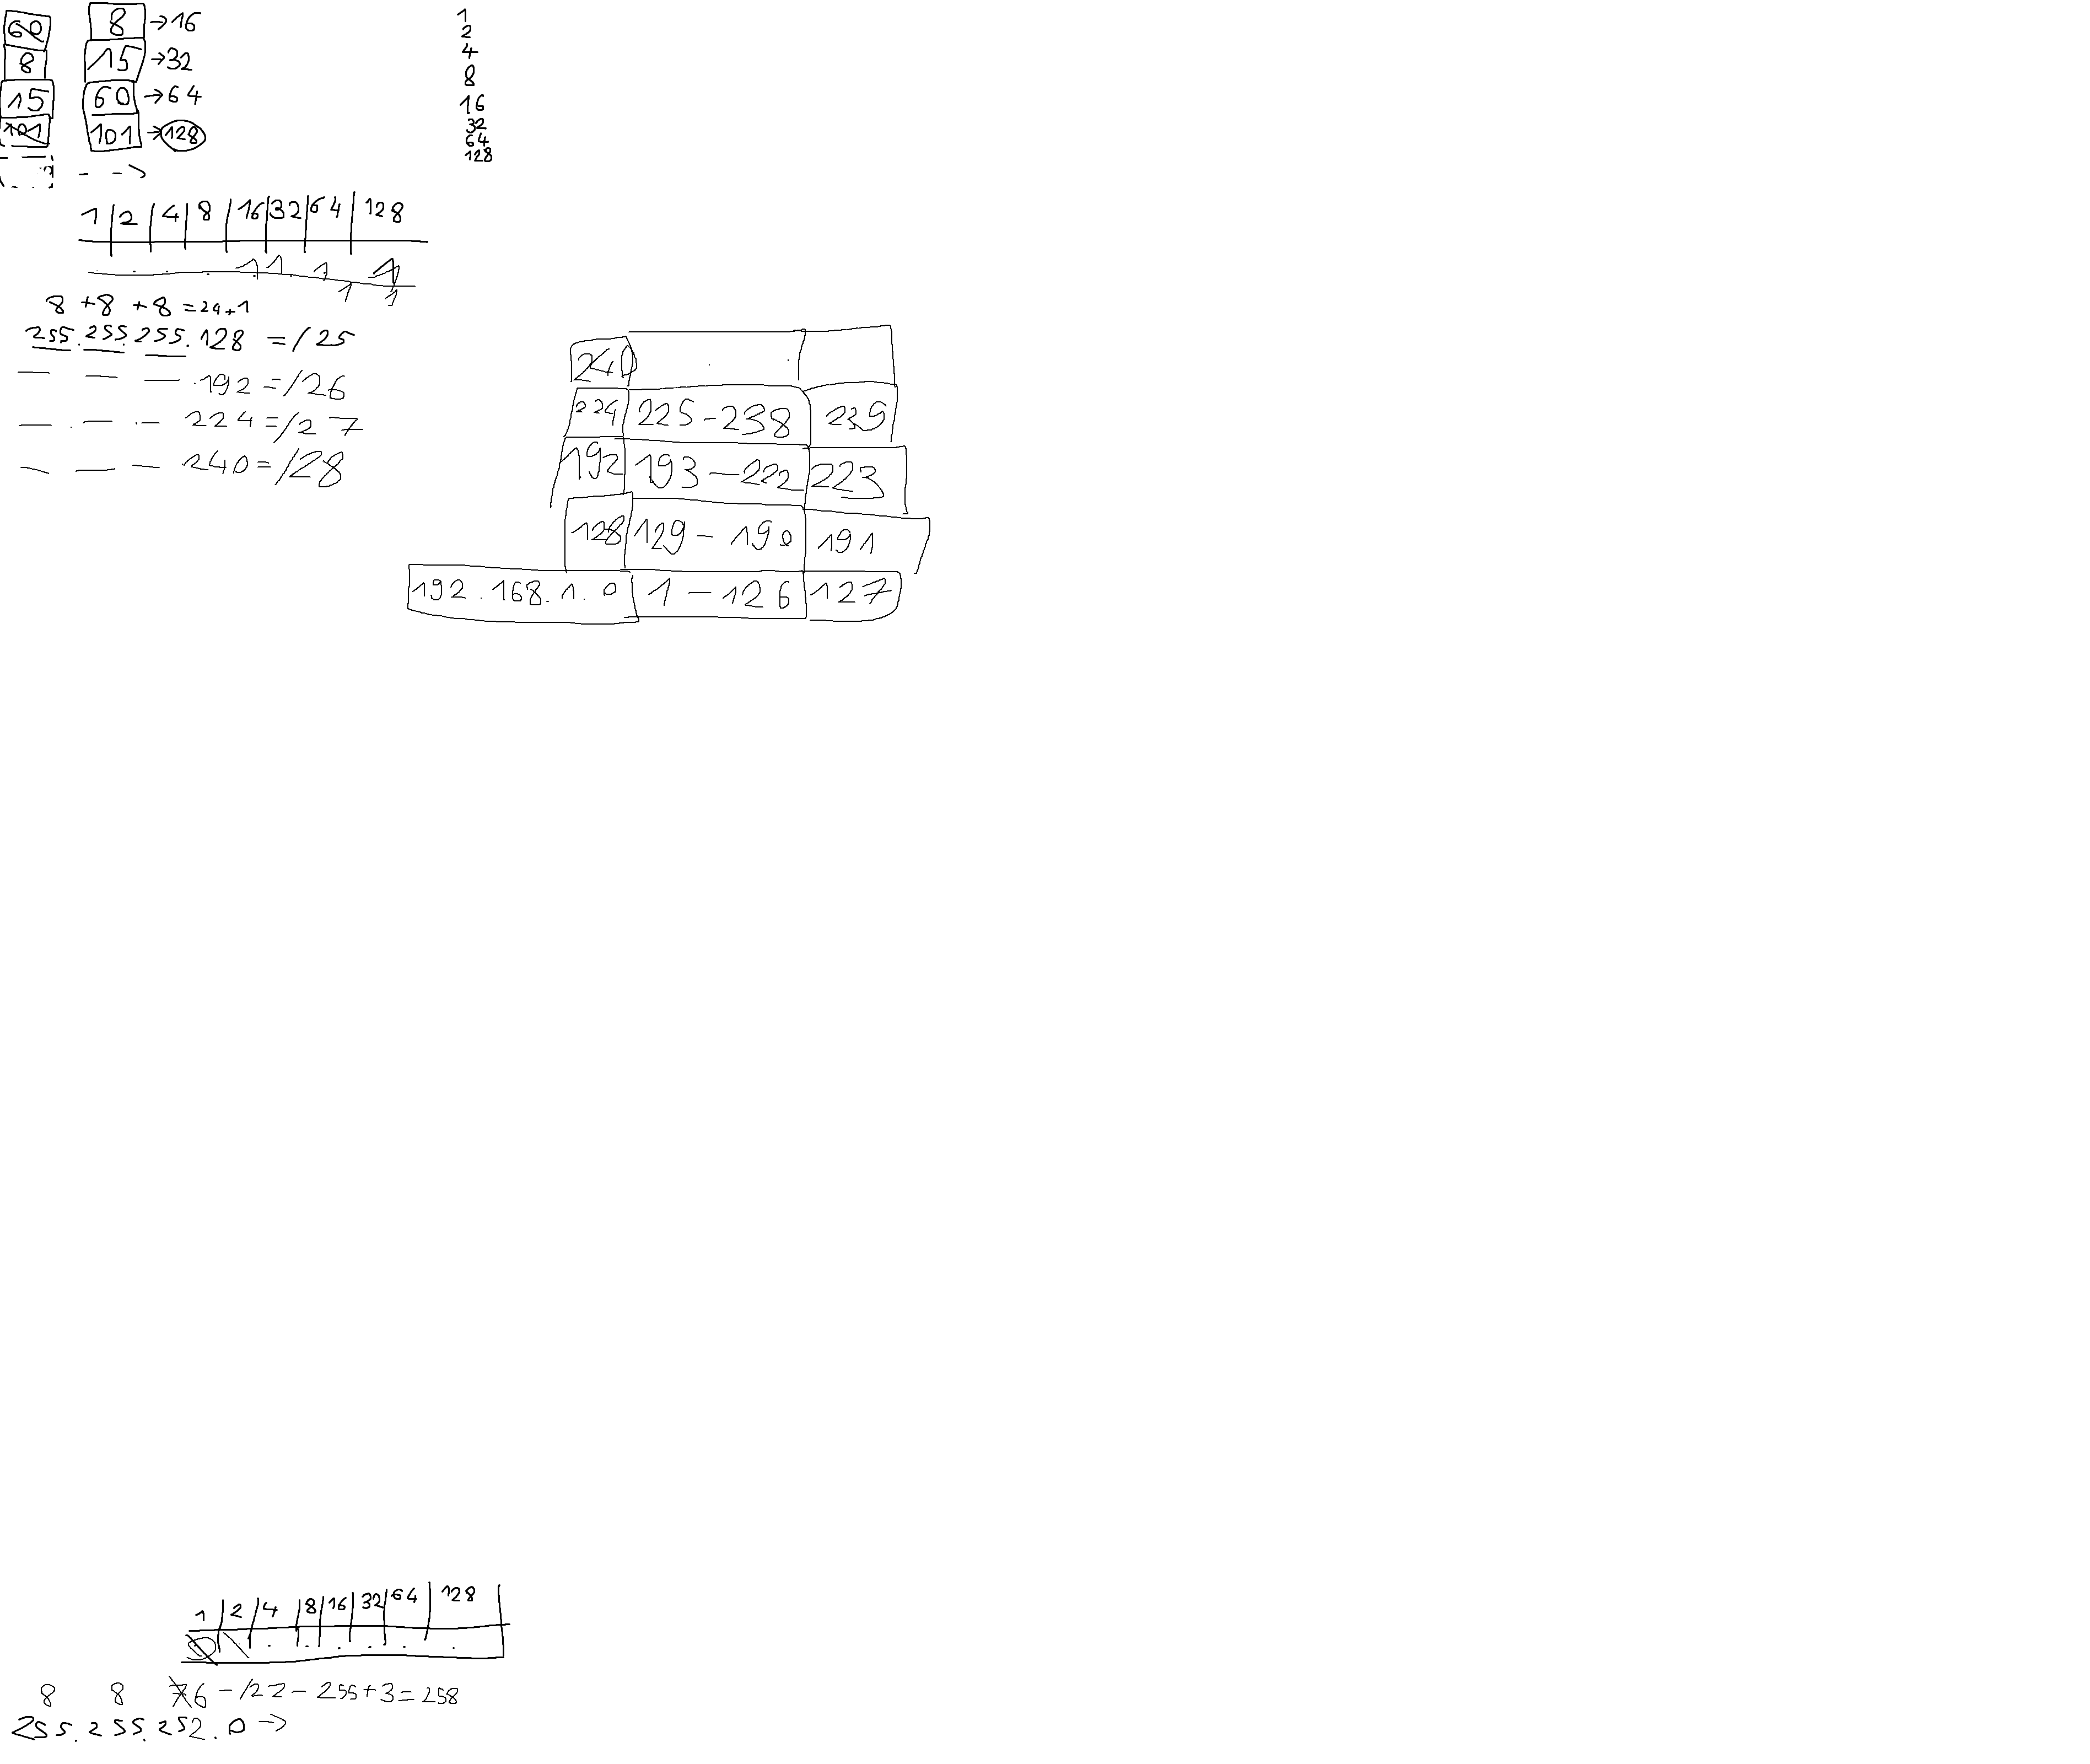 60 8 →16
8 15 →32
15 60 →64
101 101 →128
1
2
4
8
16
32
64
128
1 2 4 8 16 32 64 128
1 1 1 1
1 1
8 +8 +8 =24+1
255.255.255.128 =/25
192 =/26
224 =/27
240 =/28
240
224 225-238 239
192 193-222 223
128 129-190 191
192.168.1.0 1-126 127
1 2 4 8 16 32 64 128
8 8 6 - /22 - 255+3=258
255.255.252.0 →